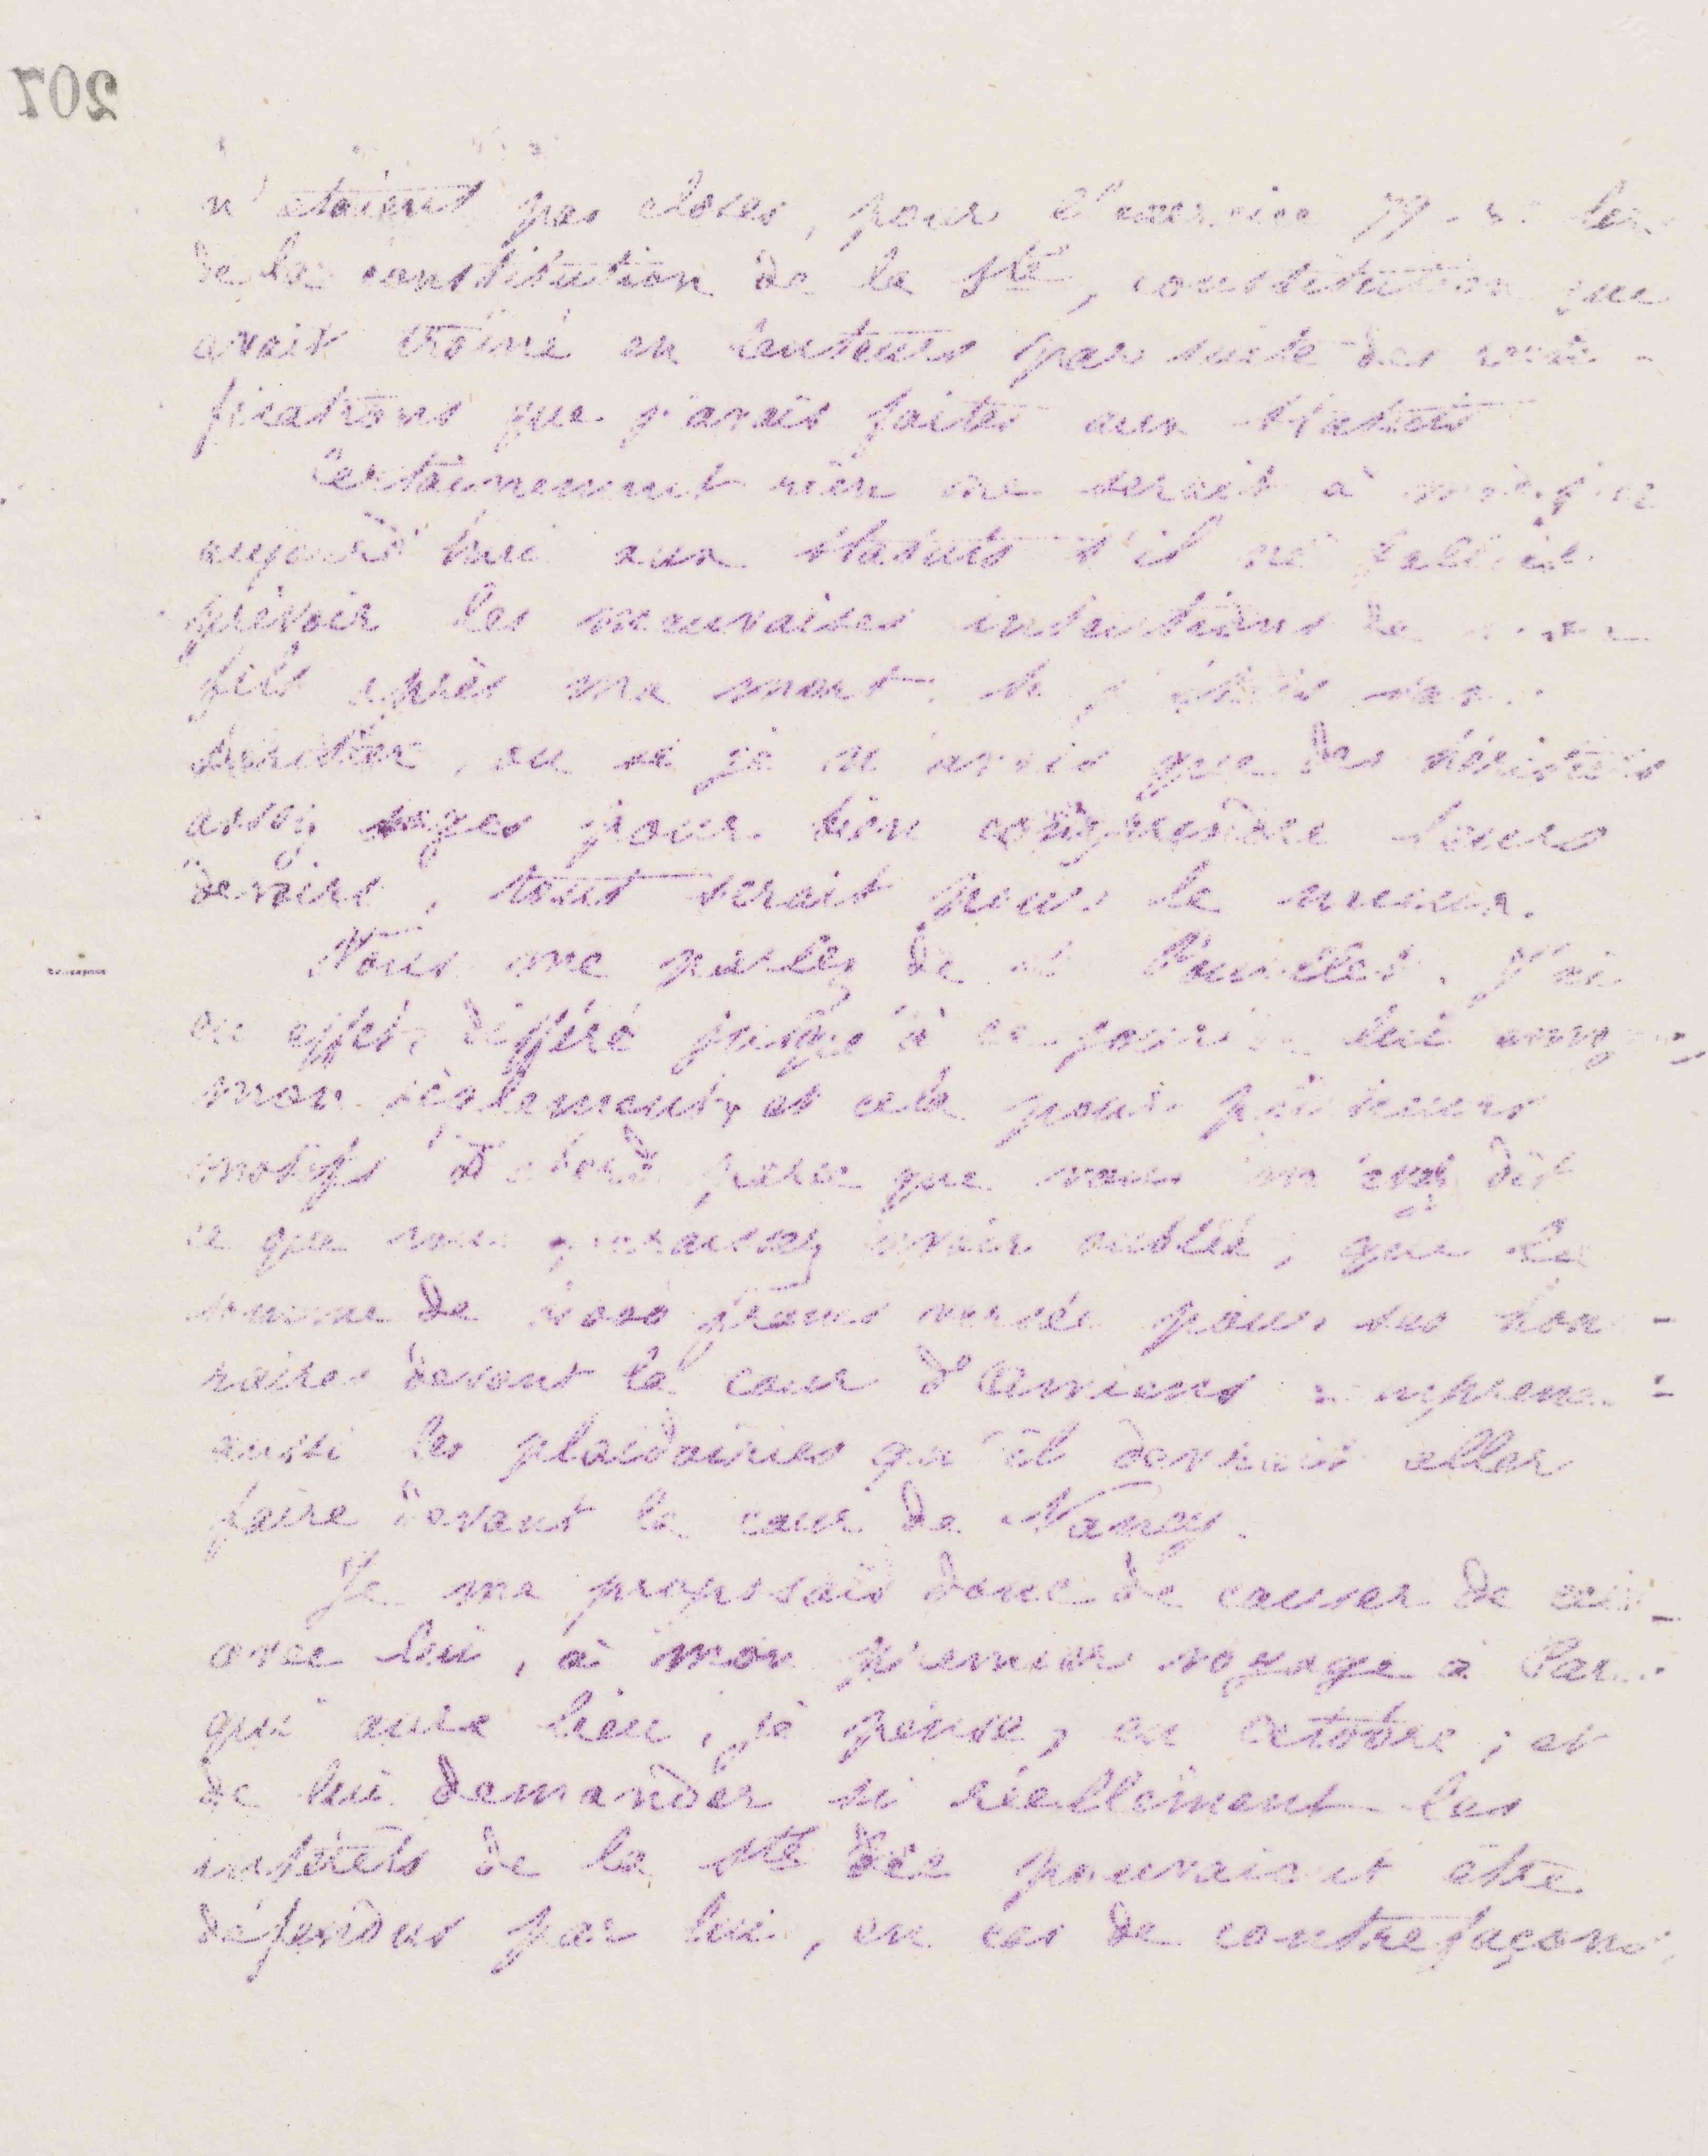 207
n'étaient pas closes, pour l'exercice 79.
de la constitution de la Sté, constitution que
avait traîné en lenteurs par suite des
fications que j'avais faites aux Statuts
Certainement rien ne serait à modifier
aujourd'hui aux Statuts s'il ne fallait
prévoir les mauvaises intentions de
fils après ma mort. Si j'étais sans
héritier, ou si je n'avais que des héritiers
assez sages pour bien comprendre leurs
devoirs, tout serait pour le mieux.
Vous me parlez de J'ai
en effet, différé jusqu'à ce jour lui
mon règlement, et cela pour plusieurs
motifs D'abord parce que vous m'avez dit
ce que vous paraissez avoir oublié, que la
somme de francs versée pour ses hono-
raires devant la cour d'Amiens comprenait
aussi les plaidoiries qu'il devrait aller
faire devant la cour de Nancy.
Je me proposais donc de causer de cela
avec lui, à mon premier voyage à Paris
qui aura lieu, je pense, en octobre ; et
de lui demander si réellement les
intérêts de la Sté pouvaient être
défendus par lui, en cas de contrefaçons